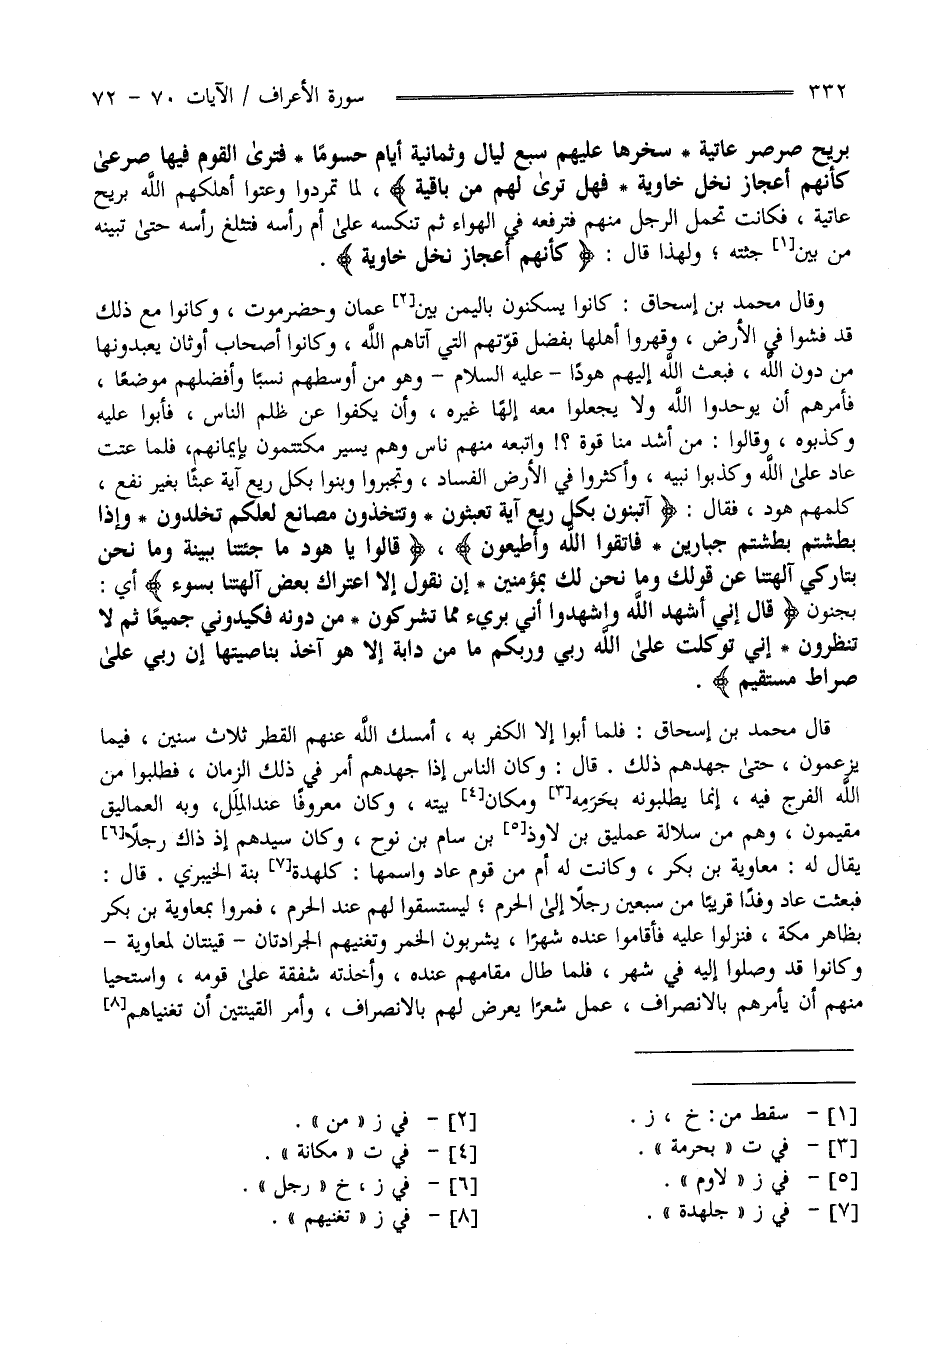 ٣٣٢ سورة الأعراف / الآيات ٧٠ - ٧٢
بريح صرصر عاتية * سخرها عليهم سبع ليال وثمانية أيام حسومًا * فترىٰ القوم فيها صرعىٰ
كأنهم أعجاز نخل خاوية * فهل ترىٰ لهم من باقية ﴾ ، لما تمردوا وعتوا أهلكهم اللَّه بريح
عاتية ، فكانت تحمل الرجل منهم فترفعه في الهواء ثم تنكسه علىٰ أم رأسه فتثلغ رأسه حتىٰ تبينه
من بين[١] جثته ؛ ولهذا قال : ﴿ كأنهم أعجاز نخل خاوية ﴾ .
وقال محمد بن إسحاق : كانوا يسكنون باليمن بين[٢] عمان وحضرموت ، وكانوا مع ذلك
قد فشوا في الأرض ، وقهروا أهلها بفضل قوّتهم التي آتاهم اللَّه ، وكانوا أصحاب أوثان يعبدونها
من دون اللَّه ، فبعث اللَّه إليهم هودًا - عليه السلام - وهو من أوسطهم نسبًا وأفضلهم موضعًا ،
فأمرهم أن يوحدوا اللَّه ولا يجعلوا معه إلهًا غيره ، وأن يكفوا عن ظلم الناس ، فأبوا عليه
وكذبوه ، وقالوا : من أشد منا قوة ؟! واتبعه منهم ناس وهم يسير مكتتمون بإيمانهم، فلما عتت
عاد علىٰ اللَّه وكذبوا نبيه ، وأكثروا في الأرض الفساد ، وتجبروا وبنوا بكل ريع آية عبثًا بغير نفع ،
كلمهم هود ، فقال : ﴿ أتبنون بكل ريع آية تعبثون * وتتخذون مصانع لعلكم تخلدون * وإذا
بطشتم بطشتم جبارين * فاتقوا اللَّه وأطيعون ﴾ ، ﴿ قالوا يا هود ما جئتنا ببينة وما نحن
بتاركي آلهتنا عن قولك وما نحن لك بمؤمنين * إن نقول إلا اعتراك بعض آلهتنا بسوء ﴾ أي :
بجنون ﴿ قال إني أشهد اللَّه واشهدوا أني بريء مما تشركون * من دونه فكيدوني جميعًا ثم لا
تنظرون * إني توكلت علىٰ اللَّه ربي وربكم ما من دابة إلا هو آخذ بناصيتها إن ربي علىٰ
صراط مستقيم ﴾ .
قال محمد بن إسحاق : فلما أبوا إلا الكفر به ، أمسك اللَّه عنهم القطر ثلاث سنين ، فيما
يزعمون ، حتىٰ جهدهم ذلك . قال : وكان الناس إذا جهدهم أمر في ذلك الزمان ، فطلبوا من
اللَّه الفرج فيه ، إنما يطلبونه بحَرَمِه[٣] ومكان[٤] بيته ، وكان معروفًا عندالمِلَل، وبه العماليق
مقيمون ، وهم من سلالة عمليق بن لاوذ[٥] بن سام بن نوح ، وكان سيدهم إذ ذاك رجلًا[٦]
يقال له : معاوية بن بكر ، وكانت له أم من قوم عاد واسمها : كلهدة[٧] بنة الخيبري . قال :
فبعثت عاد وفدًا قريبًا من سبعين رجلًا إلىٰ الحرم ؛ ليستسقوا لهم عند الحرم ، فمروا بمعاوية بن بكر
بظاهر مكة ، فنزلوا عليه فأقاموا عنده شهرًا ، يشربون الخمر وتغنيهم الجرادتان - قينتان لمعاوية -
وكانوا قد وصلوا إليه في شهر ، فلما طال مقامهم عنده ، وأخذته شفقة علىٰ قومه ، واستحيا
منهم أن يأمرهم بالانصراف ، عمل شعرًا يعرض لهم بالانصراف ، وأمر القينتين أن تغنياهم[٨]
[١] - سقط من: خ ، ز . [٢] - في ز « من » .
[٣] - في ت « بحرمة » . [٤] - في ت « مكانة » .
[٥] - في ز « لاوم » . [٦] - في ز ، خ « رجل » .
[٧] - في ز « جلهدة » . [٨] - في ز « تغنيهم » .